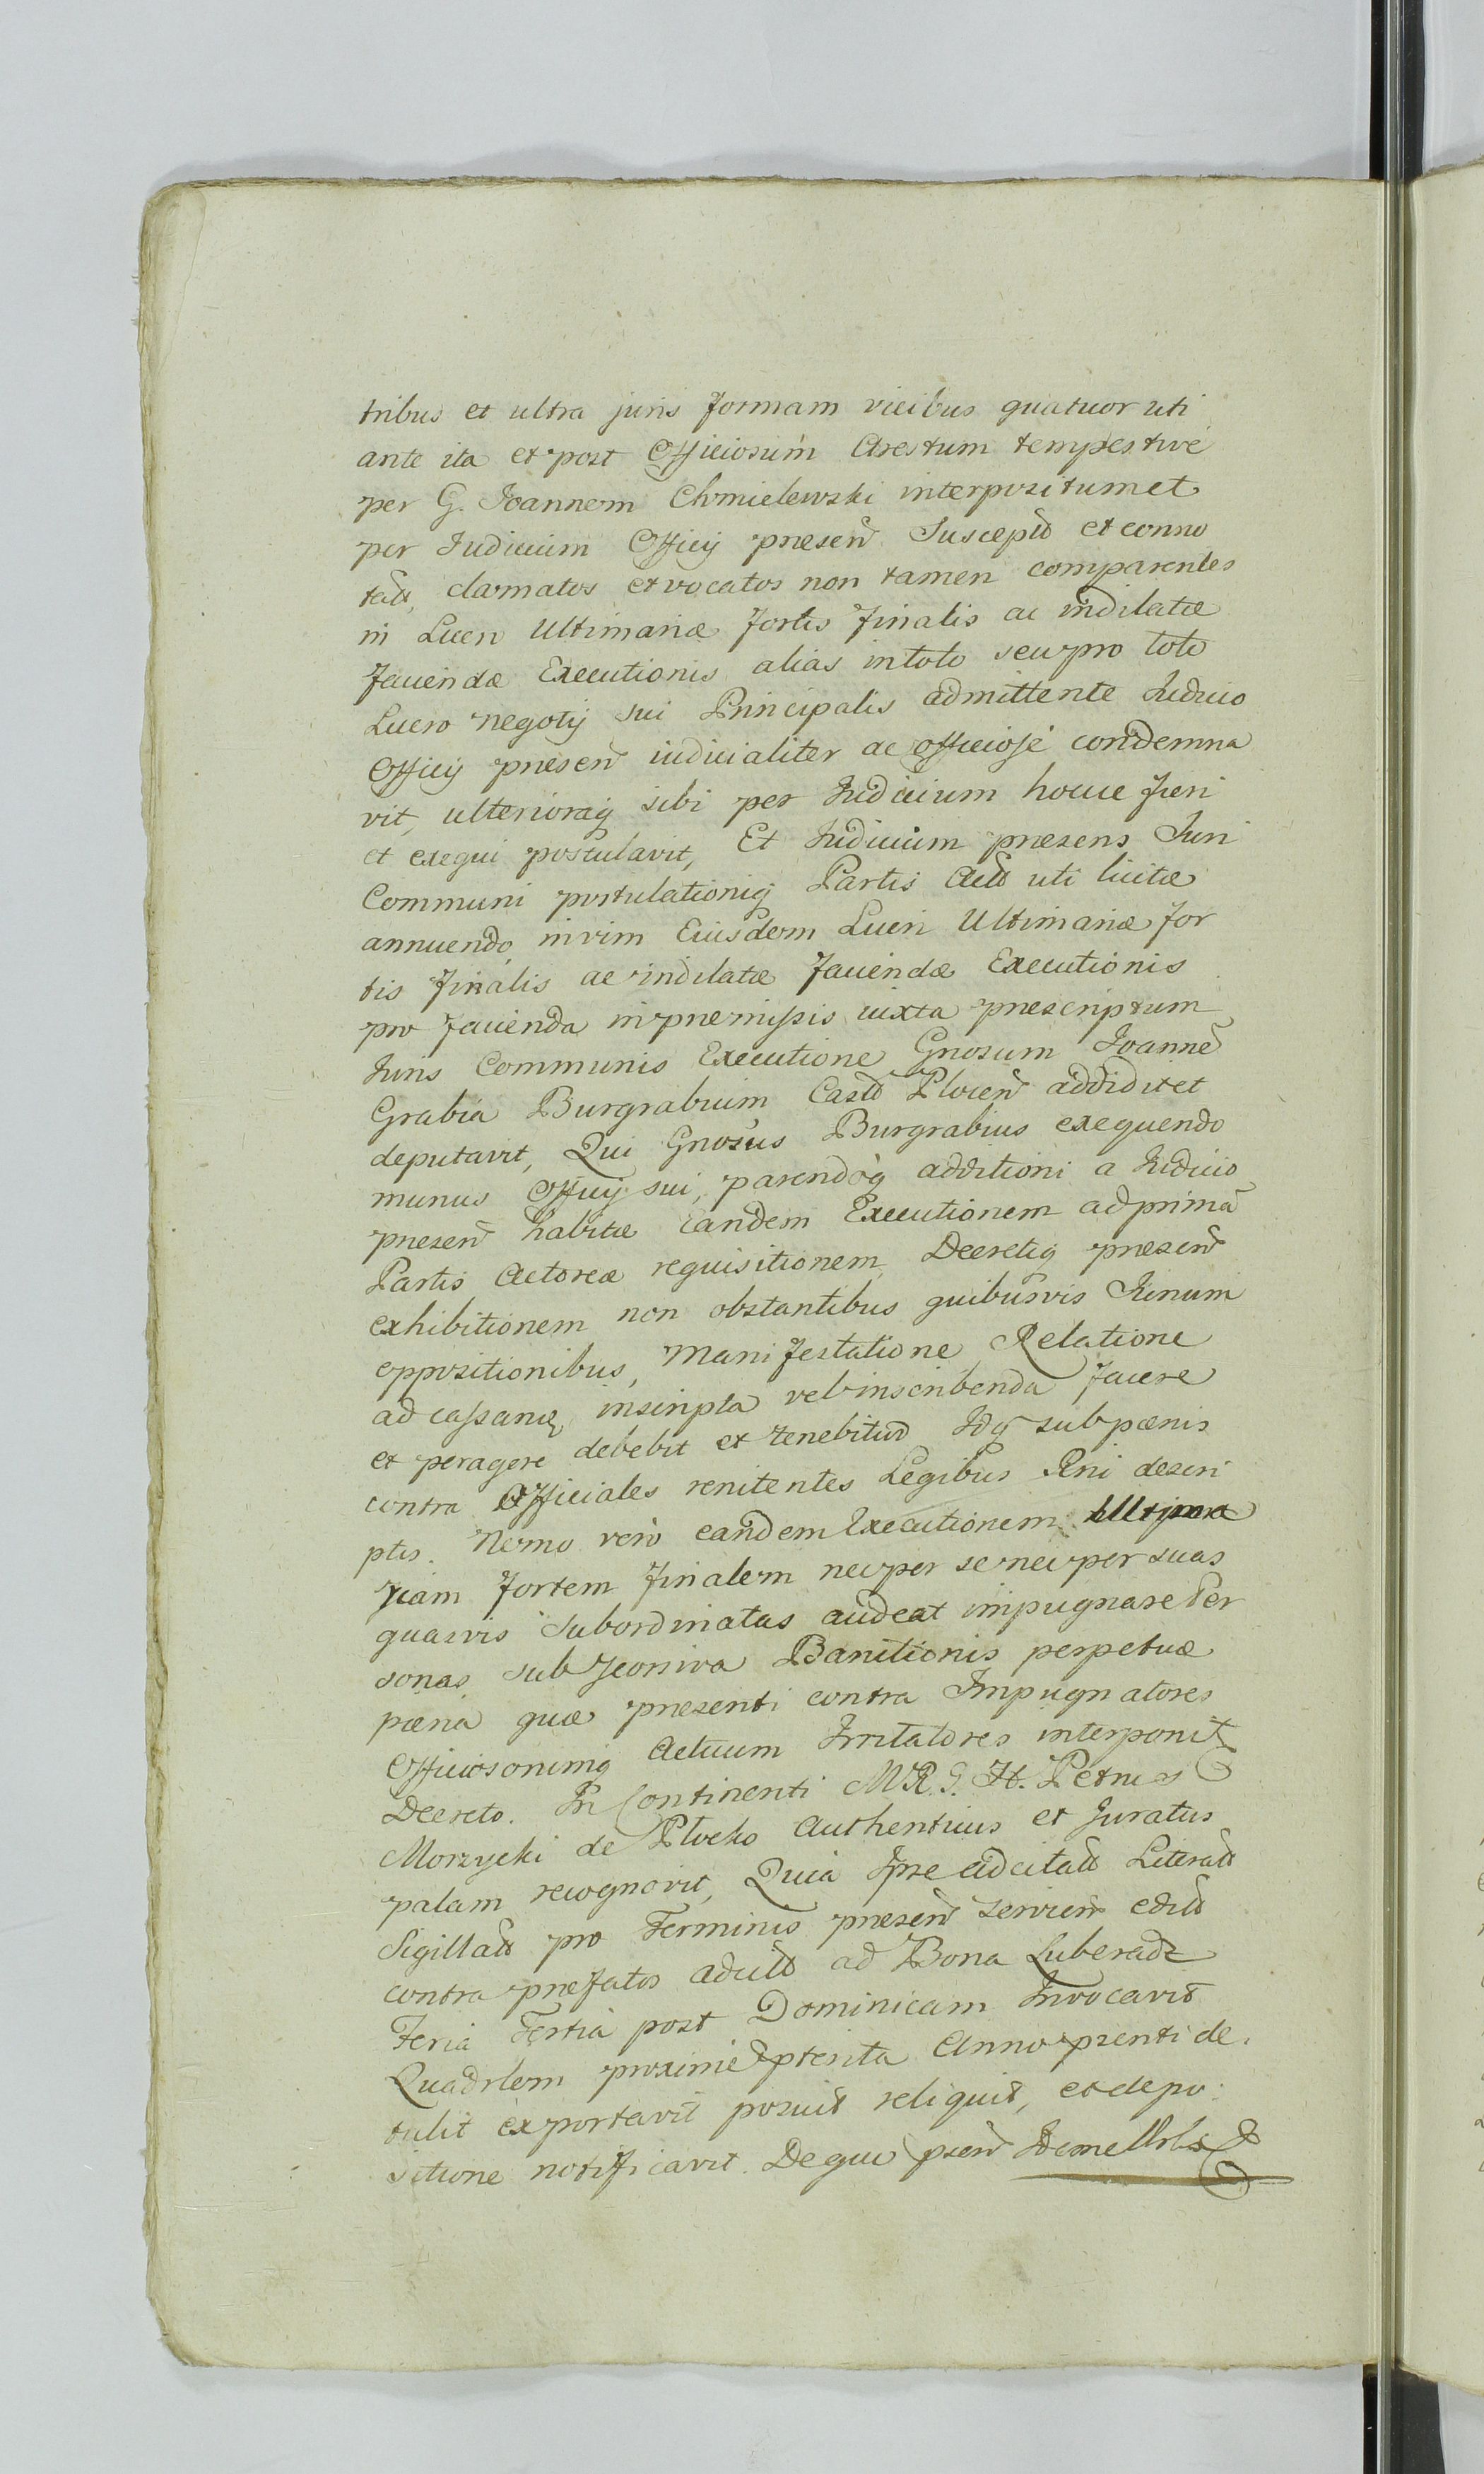 tribus et ultra juris formam vicibus quatuor uti
ante ita et post Officiosum Arestum tempestive
per G. Joannem Chmielewski interpositum et
per Judicium Officij præsen Suscept et conno
tat, clamatos et vocatos non tamen comparentes
in Lucro Ultimariæ fortis finalis ac indilatæ
faciendæ Executionis alias in toto seu pro toto
Lucro negotij sui Principalis admittente Judicio
Officij præsen iudicialiter ac officiose condemna
vit, ulterioraq sibi per Judicium hocce fieri
et exequi postulavit, Et Judicium præsens Juri
Communi postulationiq Partis Act uti licitæ
annuendo, in vim Eiusdem Lucri Ultimariæ for
tis finalis ac indilatæ faciendæ Executionis
pro facienda in præmissis iuxta præscriptum
Juris Communis Executione Gnosum Joanne
Grabia Burgrabium Cast Plocen addidit et
deputavit, Qui Gnosus Burgrabius exequendo
munus Officij sui, parendoq additioni a Judicio
præsen habitæ eandem Executionem ad prima
Partis Actoreæ requisitionem, Decretiq præsen
exhibitionem non obstantibus quibusvis Rerum
oppositionibus, Manifestatione Relatione
ad cassanq inscripta vel inscribenda facere
et peragere debebit et tenebitur Idq sub pænis
contra Officiales renitentes Legibus Rni descri
ptis. Nemo vero eandem Executionem Ultima
riam fortem finalem nec per se nec per suas
quasvis Subordinatas audeat impugnare Per
sonas, sub Banitionis perpetuæ
pæna quæ præsenti contra Impugnatores
Officiosorumq Actuum Irritatores interponit
Decreto. In Continenti M.R.G. H. Petrus
Morzycki de Plocko Authenticus et Juratus
palam recognovit, Quia Ipse Adcitat Literat
Sigillat pro Terminis præsen servien edit
contra præfatos adcit ad Bona Luberadz
Feria Tertia post Dominicam Invocavit
Quadrlem proxime pterita Anno prænti de
tulit exportavit posuit reliquit, et depo
sitione notificavit. De quo præsen